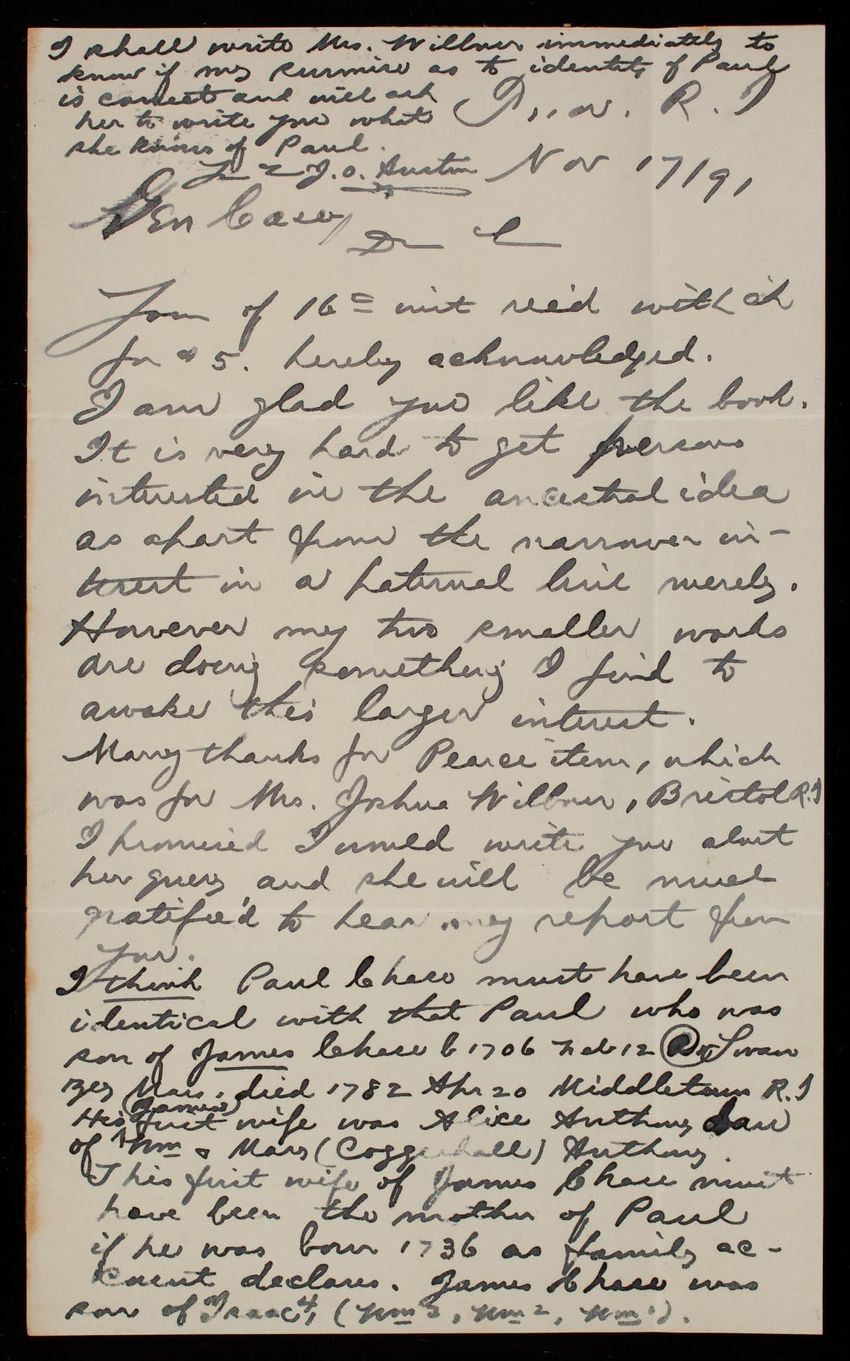 I shall write Mrs. Willner immediately to
know if my surmise as to identity of Paul
is correct and will ask
her to write you what
she knows of Paul.
J. O. Austin
Prov. R. I
Nov 17/91
Gen Casey
Dr
of 16 = inst rec'd with ch
for $5. hereby acknowledged.
I am glad you like the book.
It is very hard to get persons
interested in the ancestral idea
as apart from the narrower in-
terest in a paternal line merely.
However my two smaller works
are doing something I find to
awake this larger interest.
Many thanks for Pearce item, which
was for Mrs. Joshua Willner, Bristol R.I
I promised I would write you about
her query and she will be much
gratified to hear my report from
you.
I think Paul Chase must have been
identical with that Paul who was
son of James Chase b 1706 Feb 12 Swan
zey Mass. died 1782 Apr 20 Middletown R. I
His (James) first wife was Alice Anthony dau
of Wm & Mary (Coggeshall) Anthony.
This first wife of James Chase must
have been the mother of Paul
if he was born 1736 as family ac-
count declares. James Chase was
son of Isaac 4, (Wm 3, Wm 2, Wm 1).